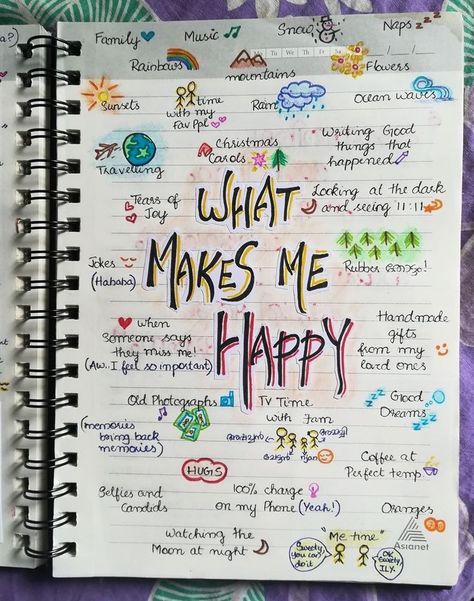 a?)
Family
Music
Snow
Naps zzz
Mo Tu We Th Fr Sa
Rainbows
mountains
Flowers
Sunsets
time
with my
fav ppl
Rain
Ocean waves
Travelling
Christmas
Carols
Writing Good
things that
happened
Tears of
Joy
Looking at the dark
and seeing 11:11
WHAT
MAKES ME
HAPPY
Jokes
(Hahaha)
Rubber തോട്ടം!
When
someone says
they miss me!
(Aw.. I feel so important)
Handmade
gifts
from my
loved ones
Old Photographs
TV Time
with Fam
(memories
bring back
memories)
zzz Good
Dreams zzz
HUGS
Coffee at
Perfect temp.
Selfies and
Candids
100% charge
on my Phone (Yeah!)
Oranges
Watching the
Moon at night
"Me time"
Sweety,
You can
do it
OK
Sweety,
ILY.
Asianet